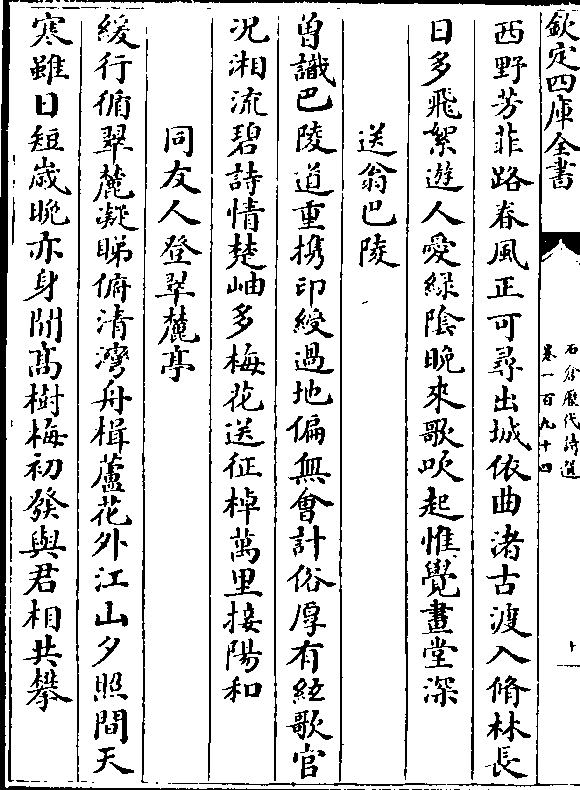 欽定四庫全書
石倉歷代詩選
卷一百九十四
十
西野芳菲路春風正可尋出城依曲渚古渡入脩林長
日多飛絮遊人愛綠陰晚來歌吹起惟覺畫堂深
送翁巴陵
曽識巴陵道重携印綬過地偏無會計俗厚有絃歌官
况湘流碧詩情楚岫多梅花送征棹萬里接陽和
同友人登翠麓亭
緩行循翠麓凝睇俯清灣舟楫蘆花外江山夕照間天
寒雖日短歲晚亦身閒髙樹梅初發與君相共攀